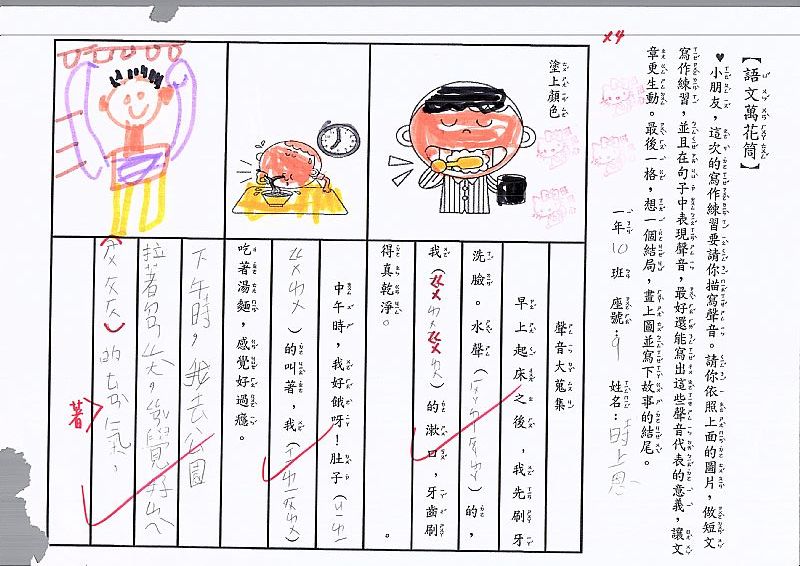 【語文萬花筒】
♥小朋友，這次的寫作練習要請你描寫聲音。請你依照上面的圖片，做短文
寫作練習，並且在句子中表現聲音，最好還能寫出這些聲音代表的意義，讓文
章更生動。最後一格，想一個結局，畫上圖並寫下故事的結尾。
一年10班 座號：9 姓名：時上恩
x4
塗上顏色
聲音大蒐集
早上起床之後，我先刷牙
洗臉。水聲（）的，
我（ㄍㄨㄍㄨ）的漱口，牙齒刷
得真乾淨。
中午時，我好餓呀！肚子（
ㄍㄨ）的叫著，我（）
吃著湯麵，感覺好過癮。
下午時，我去公園
拉著，感覺好
（ㄆㄆㄆ）的氣，
著